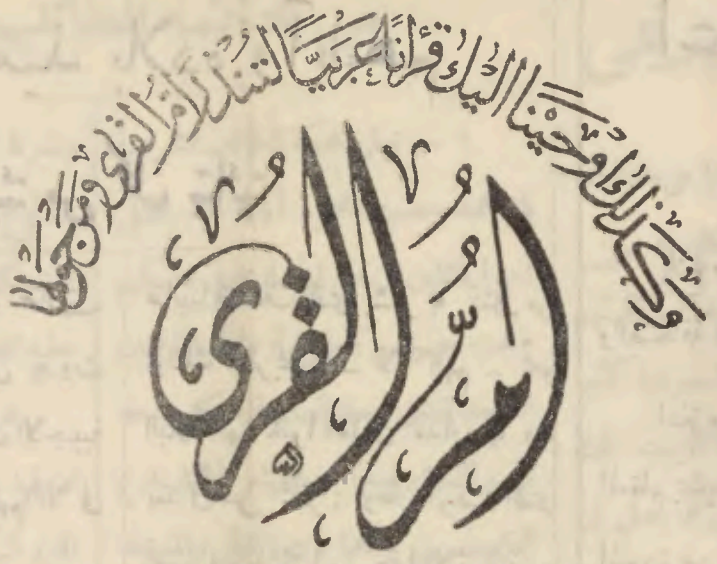 وَكَذَٰلِكَ أَوْحَيْنَا إِلَيْكَ قُرْآنًا عَرَبِيًّا لِتُنْذِرَ أُمَّ الْقُرَىٰ وَمَنْ حَوْلَهَا
أم القرى